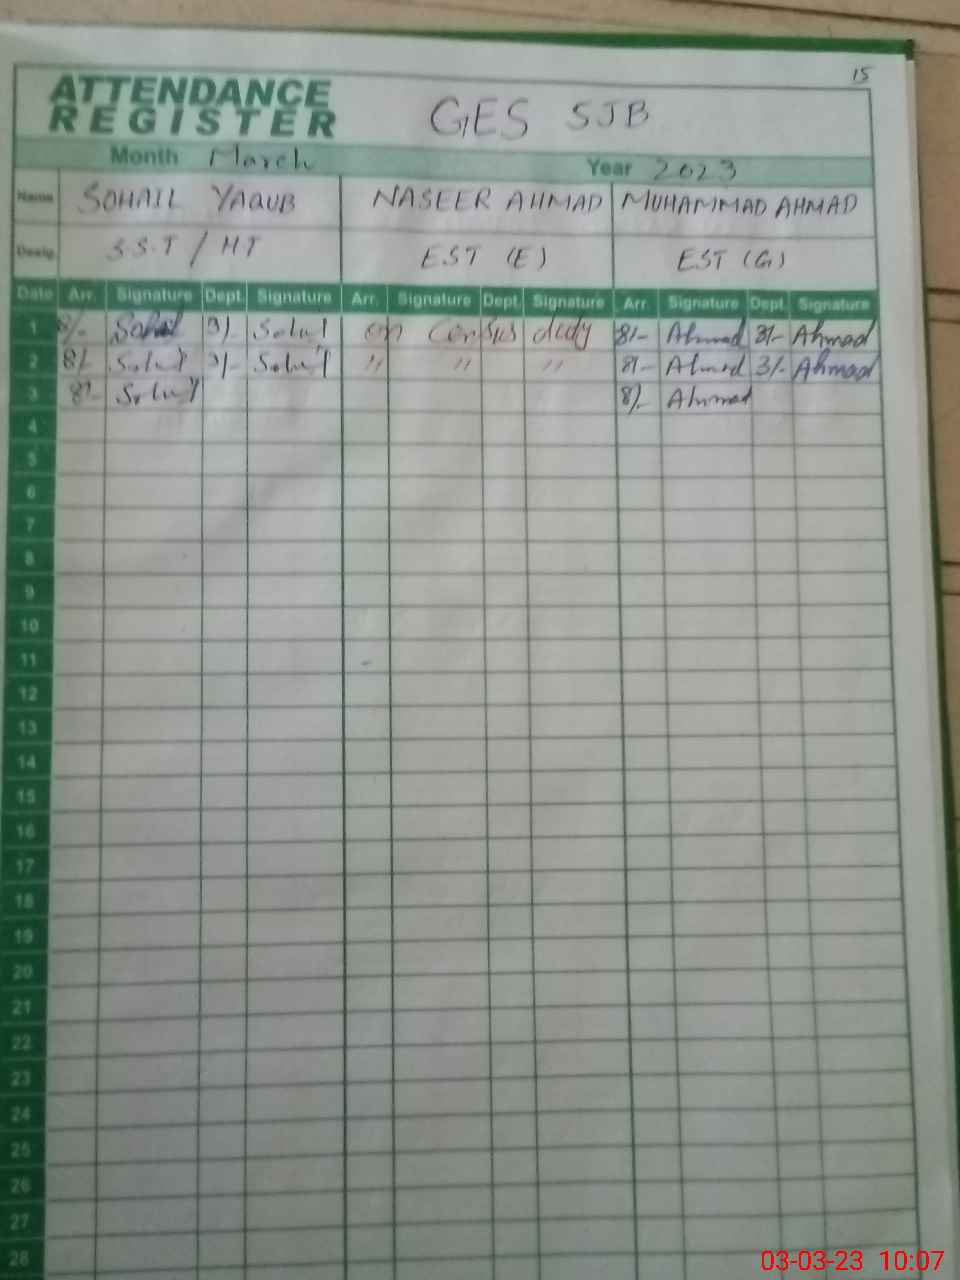 15
ATTENDANCE
REGISTER GES SJB
Month March Year 2023
Name SOHAIL YAQUB NASEER AHMAD MUHAMMAD AHMAD
Desig. S.S.T / HT EST (E) EST (G)
Date Arr. Signature Dept. Signature Arr. Signature Dept. Signature Arr. Signature Dept. Signature
1 8/- Sohail 3/- on Census duty 8/- Ahmad 3/- Ahmad
2 8/- 3/- " " " 8/- Ahmad 3/- Ahmad
3 8/- 8/- Ahmad
4
5
6
7
8
9
10
11 -
12
13
14
15
16
17
18
19
20
21
22
23
24
25
26
27
28
03-03-23 10:07